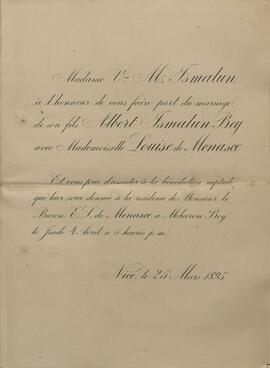 Madame Vve M. Ismalun
a l'honneur de vous faire part du mariage
de son fils Albert Ismalun Bey
avec Mademoiselle Louise de Menasce
Et vous prie d'assister à la bénédiction nuptiale
qui leur sera donnée à la résidence de Monsieur le
Baron E. L. de Menasce à Moharem Bey
le Jeudi 4 Avril à 5 heures p.m.
Nice, le 25 Mars 1895